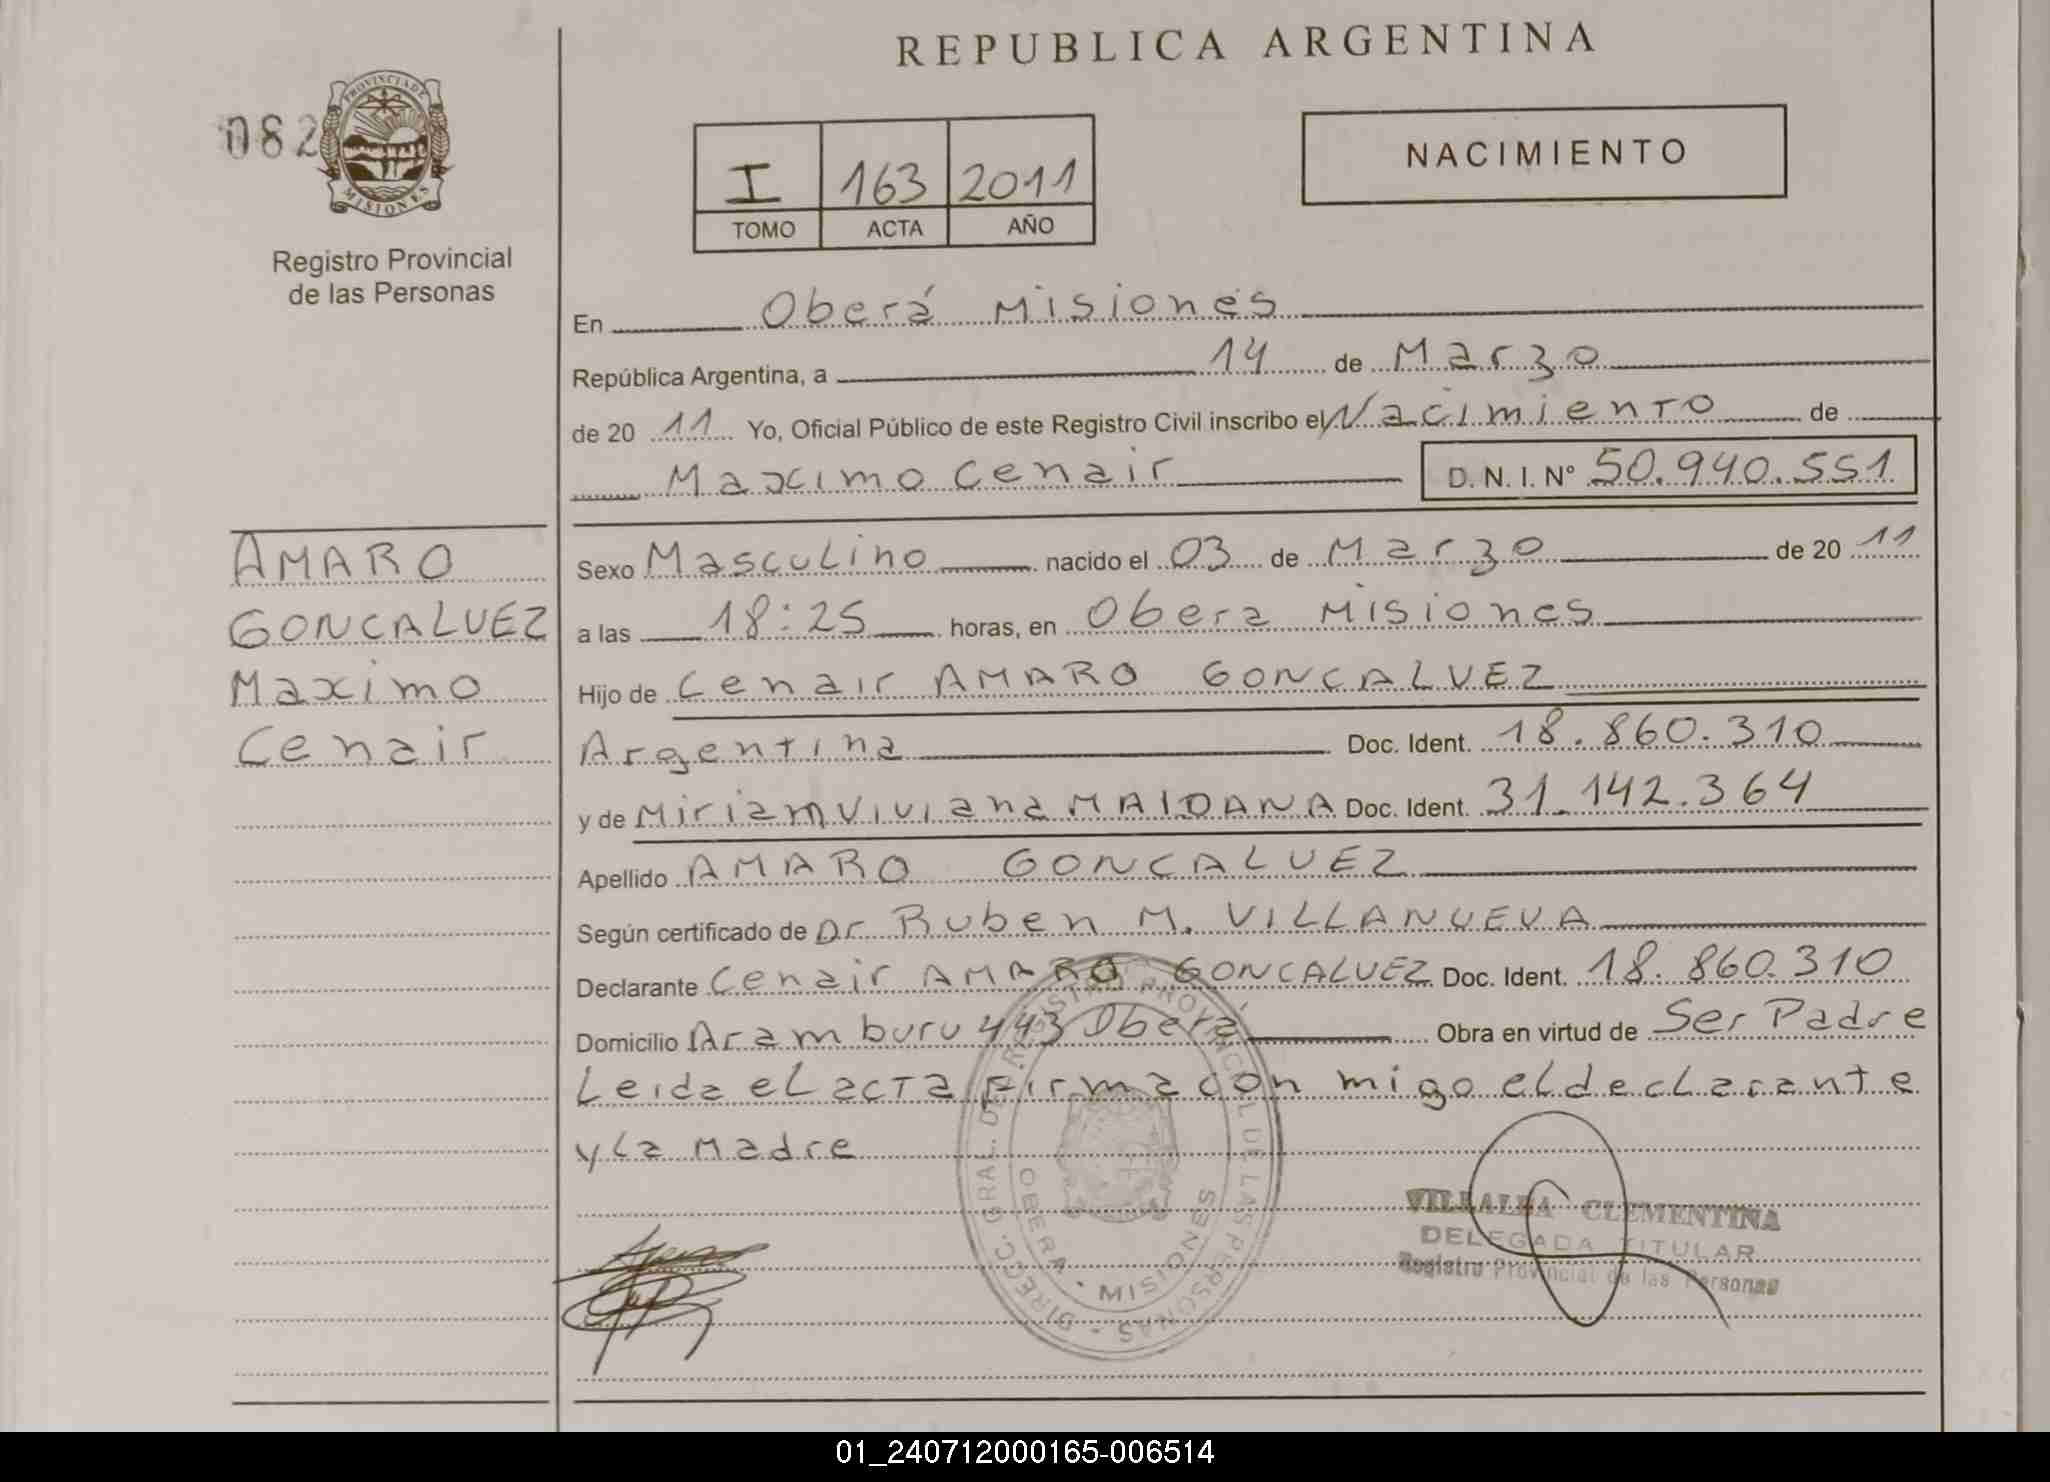 REPUBLICA ARGENTINA
082
PROVINCIA DE
MISIONES
Registro Provincial
de las Personas
I 163 2011
TOMO ACTA AÑO
NACIMIENTO
En Oberá Misiones
República Argentina, a 14 de Marzo
de 2011 Yo, Oficial Público de este Registro Civil inscribo el Nacimiento de
Maximo Cenair D. N. I. N° 50.940.551
AMARO
GONCALVEZ
Maximo
Cenair
Sexo Masculino nacido el 03 de Marzo de 2011
a las 18:25 horas, en Obera Misiones
Hijo de Cenair AMARO GONCALVEZ
Argentina Doc. Ident. 18.860.310
y de Miriam Viviana MAIDANA Doc. Ident. 31.142.364
Apellido AMARO GONCALVEZ
Según certificado de Dr Ruben M. VILLANUEVA
Declarante Cenair AMARO GONCALVEZ Doc. Ident. 18.860.310
Domicilio Aramburu 443 Obera Obra en virtud de Ser Padre
Leida el acta firma con migo el declarante
y la Madre
DIRECC. GRAL. DEL REGISTRO PROVINCIAL DE LAS PERSONAS
OBERA - MISIONES
VILLALBA CLEMENTINA
DELEGADA TITULAR
Registro Provincial de las Personas
01_240712000165-006514